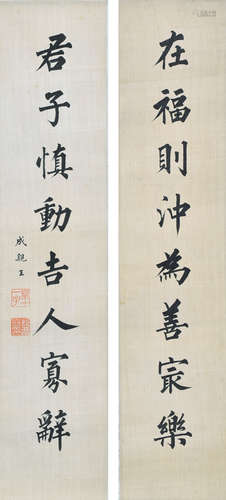 在福則沖為善冣樂
君子慎動吉人寡辭
成親王